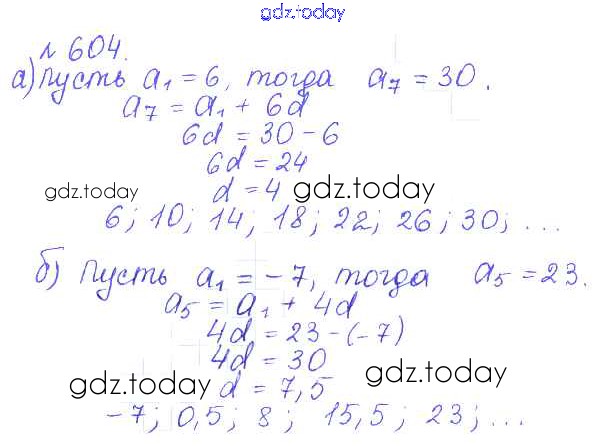 gdz.today
№ 604.
а) Пусть a₁ = 6, тогда a₇ = 30.
a₇ = a₁ + 6d
6d = 30 - 6
6d = 24
gdz.today d = 4 gdz.today
6; 10; 14; 18; 22; 26; 30; ...
б) Пусть a₁ = -7, тогда a₅ = 23.
a₅ = a₁ + 4d
4d = 23 - (-7)
4d = 30
gdz.today d = 7,5 gdz.today
-7; 0,5; 8; 15,5; 23; ...